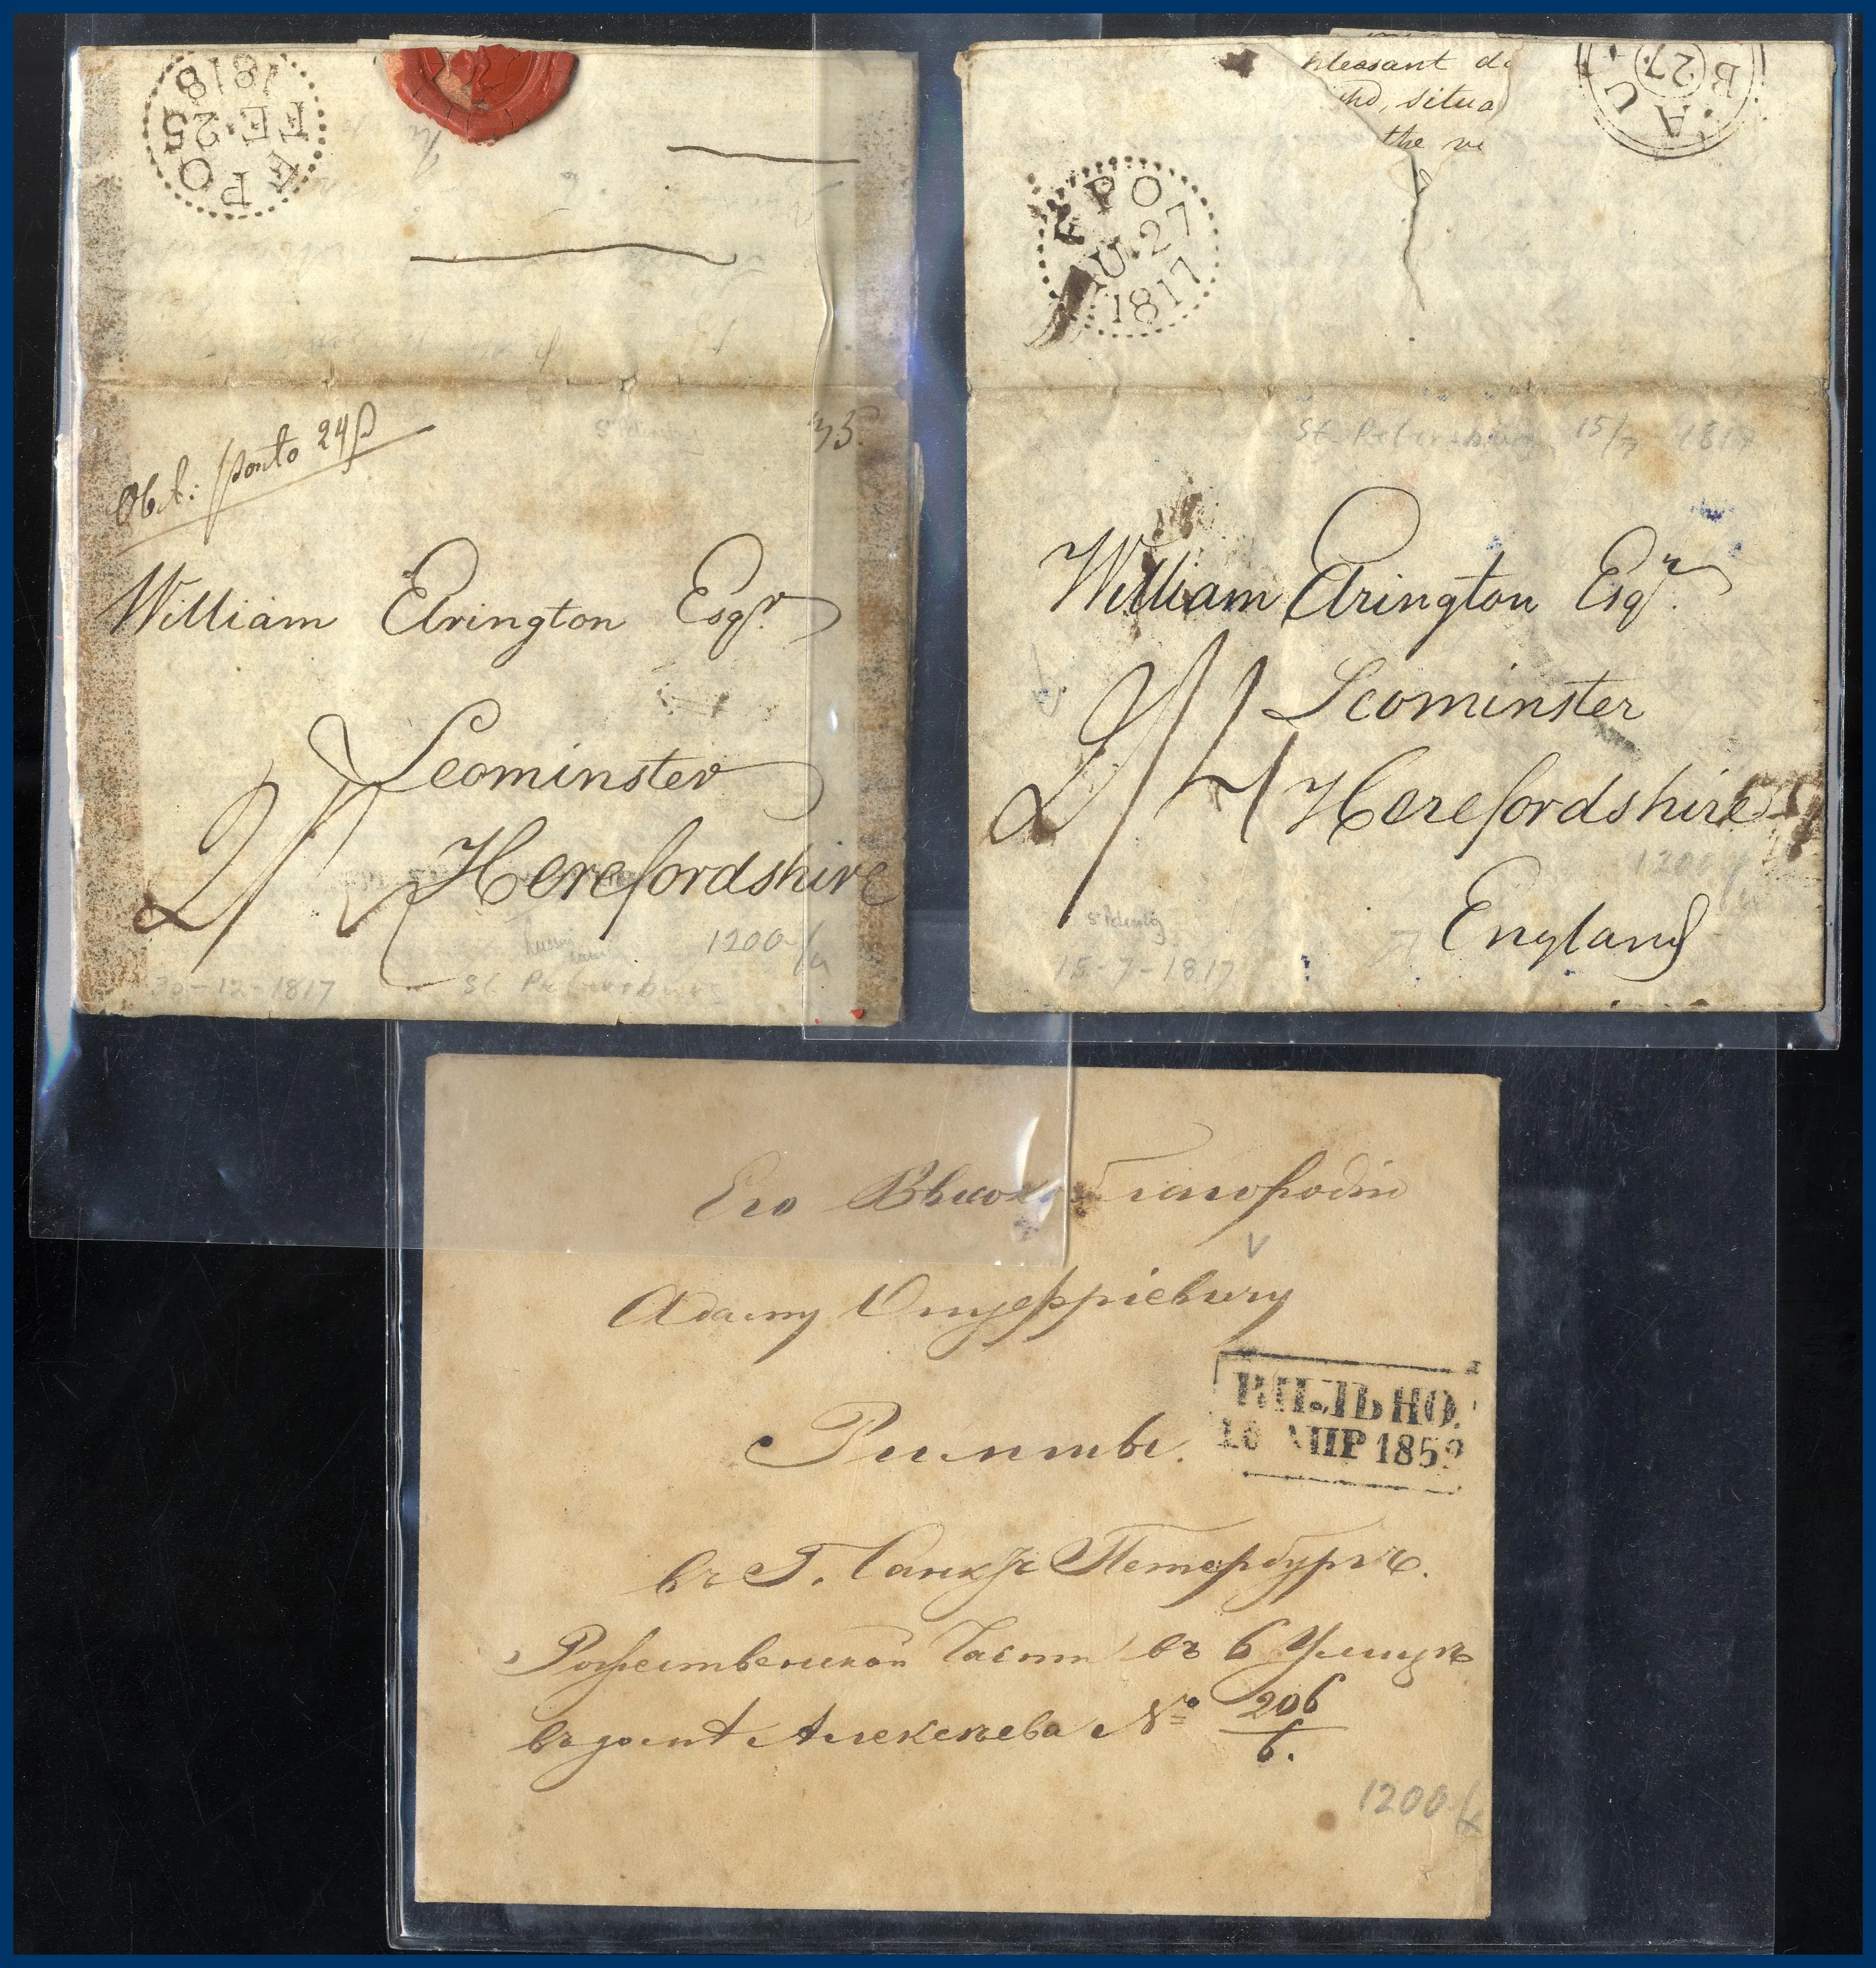 FPO
FE 25
1818
Obl: porto 24 β
35
William Elrington Esqr
Leominster
Herefordshire
2/
1200
30-12-1817
St. Petersburg
pleasant
situa
the
B
27
AU
FPO
AU 27
1817
St. Petersburg 15/7 1817
William Elrington Esqr.
Leominster
Herefordshire
England
2/4
1200
15-7-1817
Его Высокоблагородію
Адаму Онуфріевичу
ВИЛЬНО.
16 АПР 185
въ Г. Санктъ Петербургѣ.
Рожественской Части въ 6 Улицѣ
въ домѣ Алексѣева № 206
6.
1200